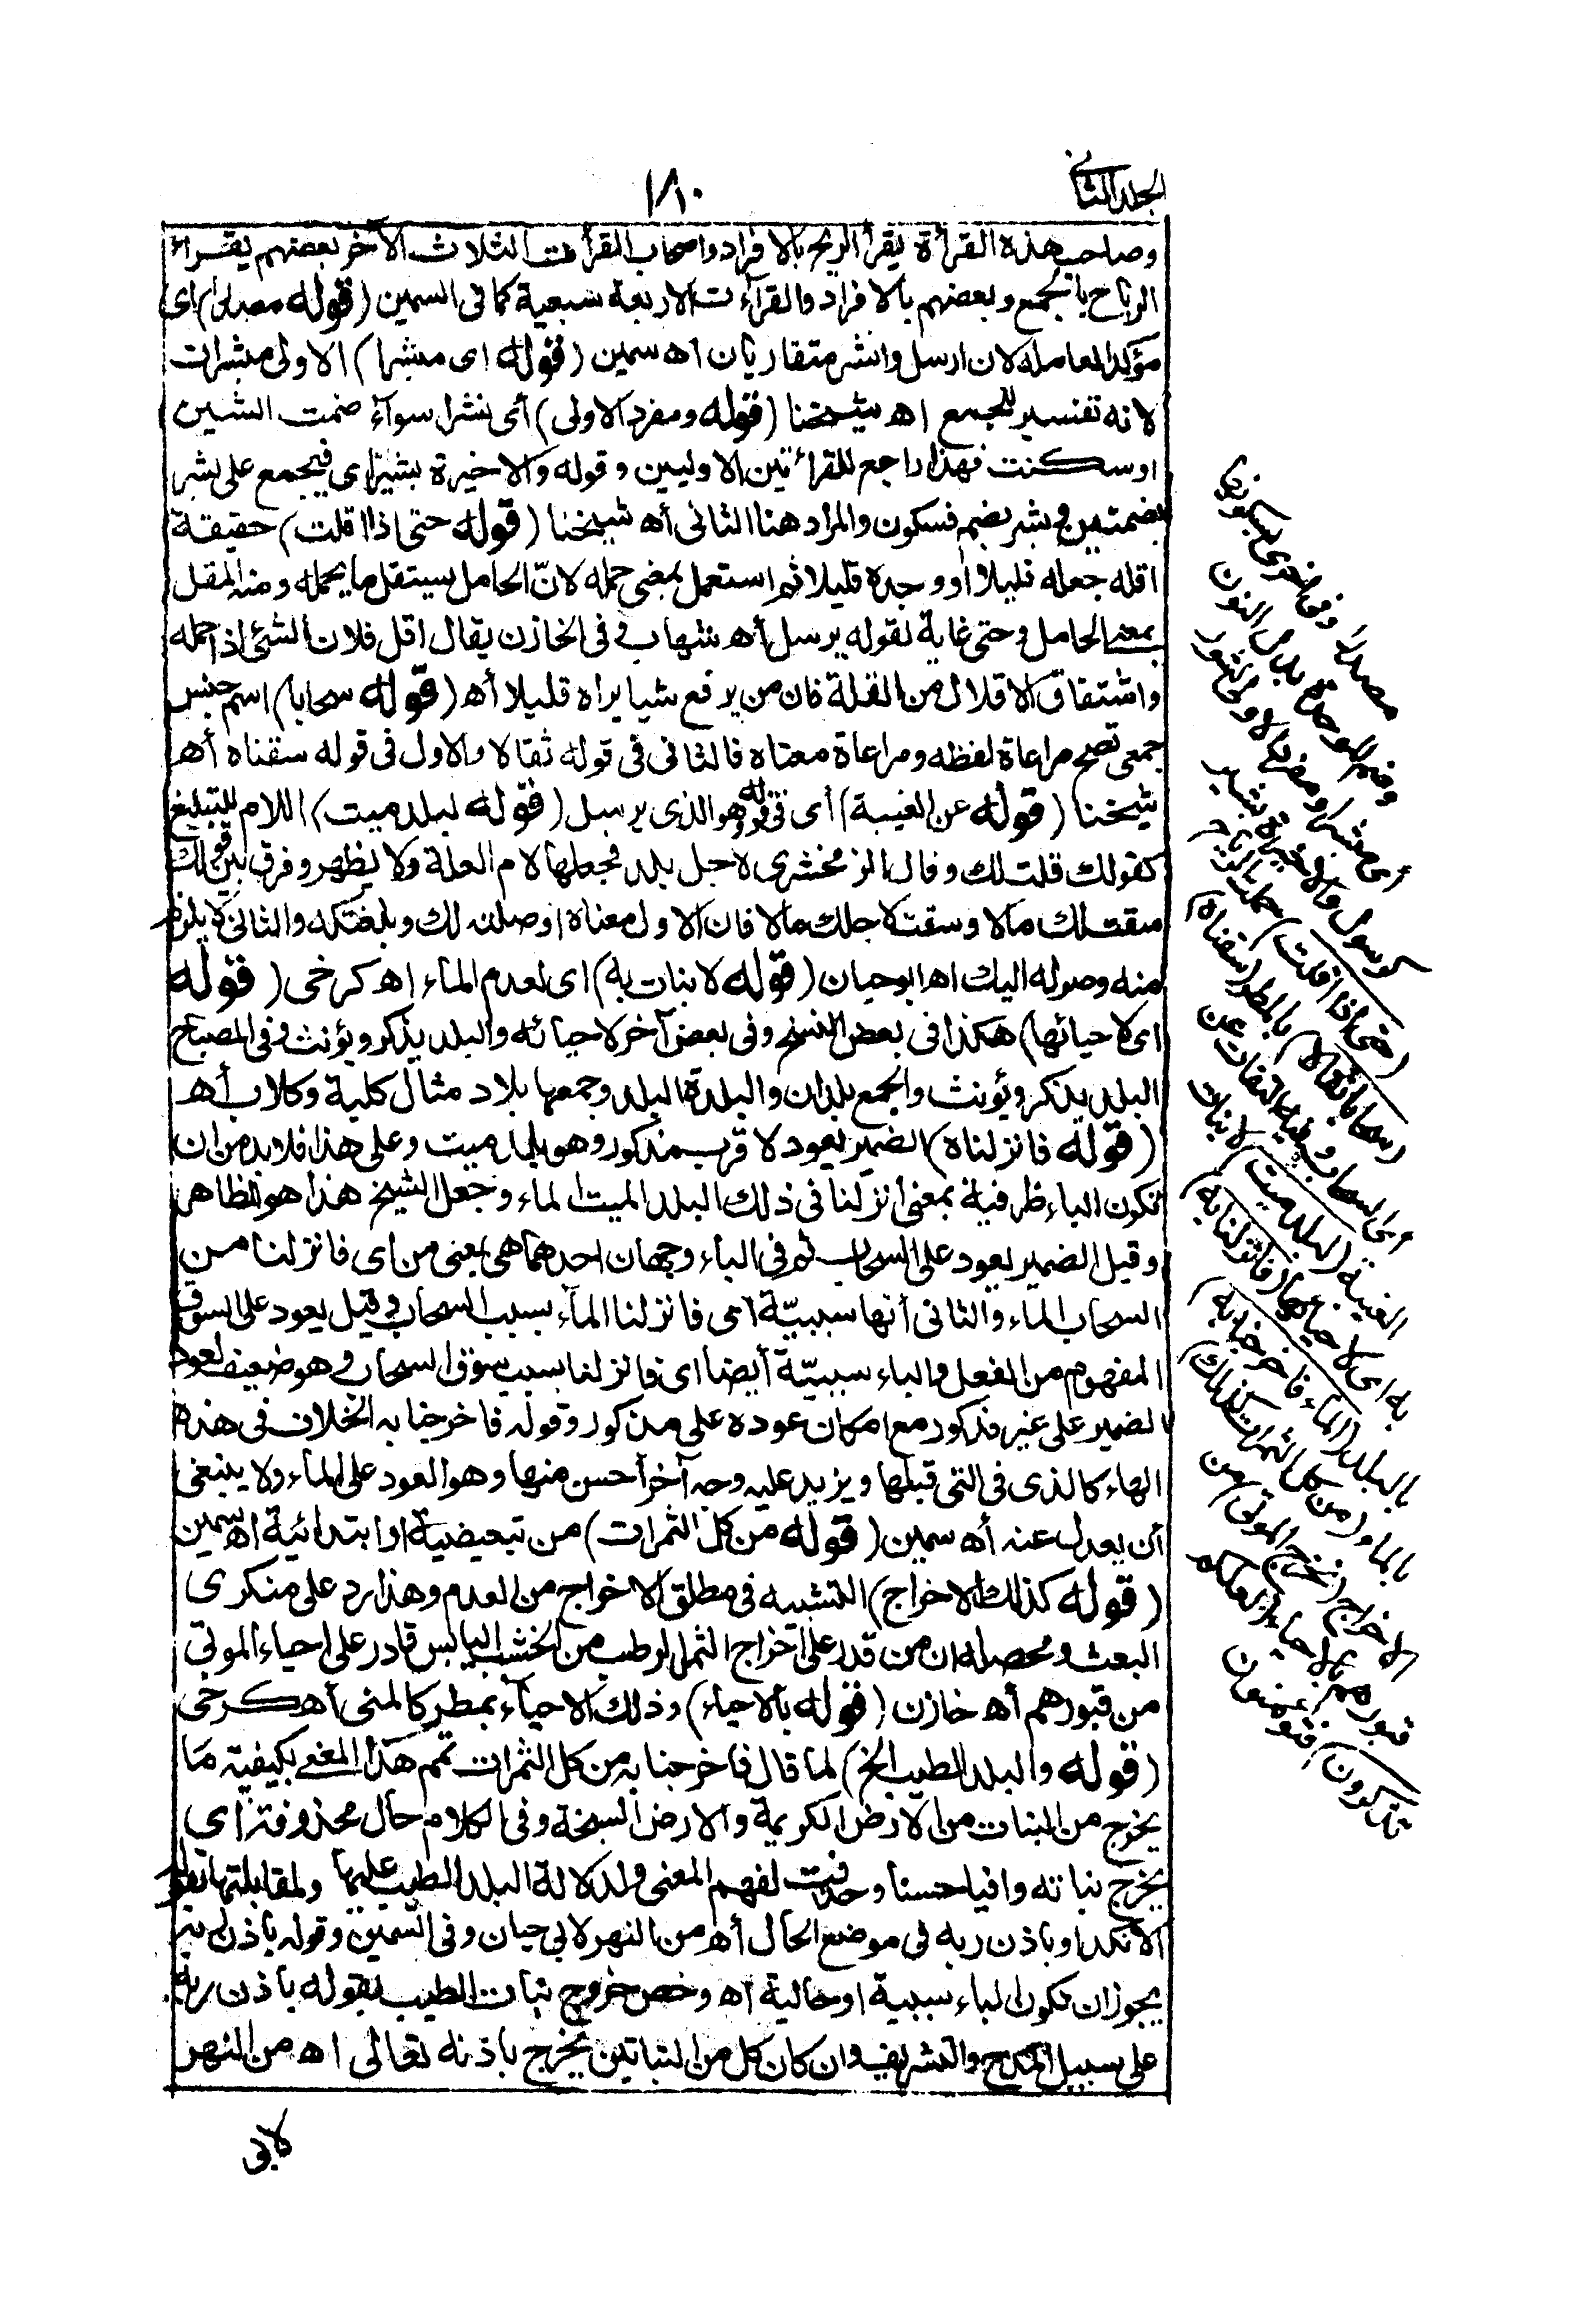 الجلد الثانى
١٨٠
وصاحب هذه القرأة يقرأ الريح بالافراد واصحاب القرأت الثلاث الآخر بعضهم يقراء
الرياح بالجمع وبعضهم بالافراد والقرآءت الاربعة سبعية كما فى السمين (قوله مصدرا) اى
مؤكد لعامله لان ارسل وانشر متقاربان اه سمين (قوله اى مبشرا) الاولى مبشرات
لانه تفسير للجمع اه شيخنا (قوله ومفرد الاولى) أى نشرا سوآء ضمت الشين
اوسكنت فهذا راجع للقرائتين الاوليين وقوله والاخيرة بشيرا اى فيجمع على بشر
بضمتين وبشر بضم فسكون والمراد هنا الثانى أه شيخنا (قوله حتى اذا اقلت) حقيقة
اقله جعله قليلا أو وجده قليلا ثم استعمل بمعنى حمله لانّ الحامل يستقل ما يحمله ومنه المقل
بمعنى الحامل وحتى غاية لقوله يرسل أه شهاب وفى الخازن يقال اقل فلان الشئ اذا حمله
واشتقاق الاقلال من القلة فان من يرفع شيا يراه قليلا أه (قوله سحابا) اسم جنس
جمعى تصح مراعاة لفظه ومراعاة معناه فالثانى فى قوله ثقالا والاول فى قوله سقناه أه
شيخنا (قوله عن الغيبة) أى فى قوله وهو الذى يرسل (قوله لبلد ميت) اللام للتبليغ
كقولك قلت لك وقال الزمخشرى لاجل بلد فجعلها لام العلة ولا يظهر وفرق بين قولك
سقت لك مالا وسقت لاجلك مالا فان الاول معناه اوصلته لك وبلغتكه والثانى لا يلزم
منه وصوله اليك اه ابوحيان (قوله لا نبات به) اى لعدم المآء اه كرخى (قوله
اى لاحيائها) هكذا فى بعض النسخ وفى بعض آخر لاحيائه والبلد يذكر ويؤنث وفى المصباح
البلد يذكر ويؤنث والجمع بلدان والبلدة البلد وجمعها بلاد مثال كلبة وكلاب أه
(قوله فانزلناه) الضمير يعود لاقرب مذكور وهو بلد ميت وعلى هذا فلا بد من ان
تكون الباء ظرفية بمعنى أنزلنا فى ذلك البلد الميت الماء وجعل الشيخ هذا هو الظاهر
وقيل الضمير يعود على السحاب ثم فى الباء وجهان احدهما هى بمعنى من اى فانزلنا من
السحاب الماء والثانى أنها سببيّة اى فانزلنا المآء بسبب السحاب وقيل يعود على السوق
المفهوم من الفعل والباء سببيّة أيضا اى فانزلنا بسبب سوق السحاب وهو ضعيف لعود
الضمير على غير مذكور مع امكان عوده على مذكور وقوله فاخرجنا به الخلاف فى هذه
الهاء كالذى فى التى قبلها ويزيد عليه وجه آخر أحسن منها وهو العود على الماء ولا ينبغى
أن يعدل عنه أه سمين (قوله من كل الثمرات) من تبعيضية او ابتدائية اه سمين
(قوله كذلك الاخراج) التشبيه فى مطلق الاخراج من العدم وهذا رد على منكرى
البعث ومحصله ان من قدر على اخراج الثمر الرطب من الخشب اليابس قادر على احياء الموتى
من قبورهم أه خازن (قوله بالاحياء) وذلك الاحيآء بمطر كالمنى أه كرخى
(قوله والبلد الطيب الخ) لما قال فاخرجنا به من كل الثمرات تمم هذا المعنى بكيفية مَا
يخرج من النبات من الارض الكريمة والارض السبخة وفى الكلام حال محذوفة اى
يخرج نباته وافيا حسنا وحذفت لفهم المعنى ولدلالة البلد الطيب عليها ولمقابلتها بقوله
الا نكدا وباذن ربه فى موضع الحال أه من النهر لابى حيان وفى السمين وقوله باذن ربه
يجوز ان تكون الباء سببية او حالية اه وخص خروج نبات الطيب بقوله باذن ربه
على سبيل المدح والتشريف وان كان كل من النباتين يخرج باذنه تعالى اه من النهر
لابى
مصدرا وفى اخرى بسكونها
وضم الموحدة بدل النون
أى مبشرا ومفرد الاولى نشور
كرسول والاخيرة بشير
(حتى اذا اقلت) حملت الرياح
(سحابا ثقالا) بالمطر (سقناه)
أى السحاب وفيه التفات عن
الغيبة (لبلد ميت) لا نبات
به اى لاحيائها (فانزلنا به)
بالبلد (الماء فاخرجنا به)
بالماء (من كل الثمرات كذلك)
الاخراج (نخرج الموتى) من
قبورهم بالاحياء (لعلكم
تذكرون) فتؤمنون